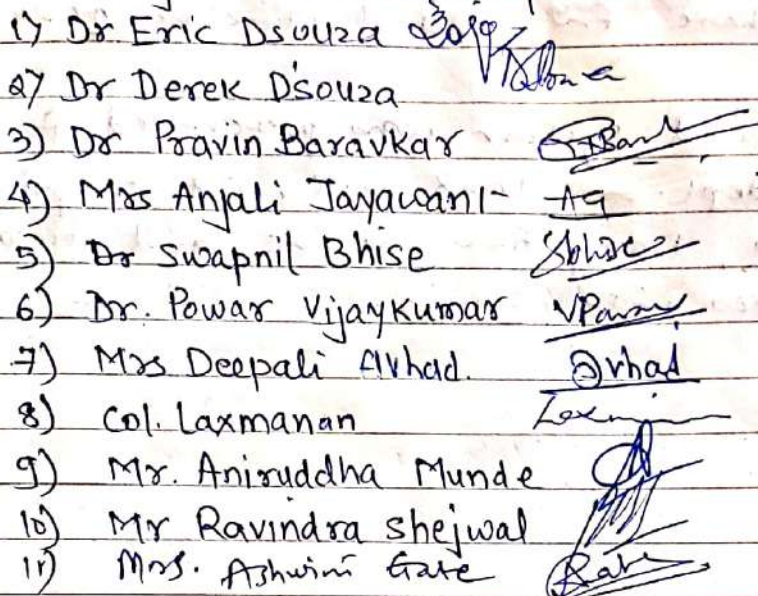 1) Dr Eric Dsouza
2) Dr Derek D'souza
3) Dr Pravin Baravkar
4) Mrs Anjali Jayawant
5) Dr Swapnil Bhise
6) Dr. Powar Vijaykumar VPawar
7) Mrs Deepali Avhad. Avhad
8) Col. Laxmanan
9) Mr. Aniruddha Munde
10) Mr Ravindra Shejwal
11) Mrs. Ashwini